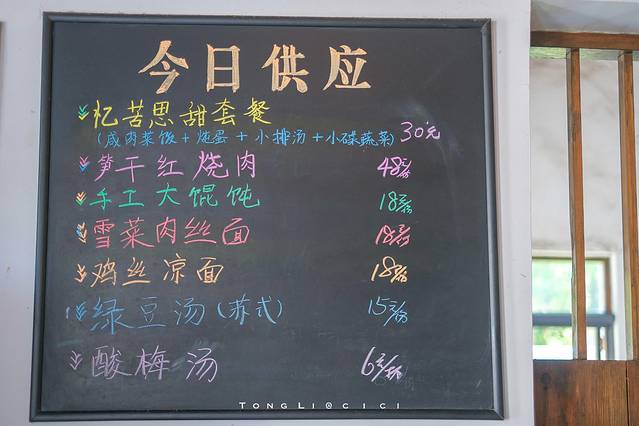 今日供应
忆苦思甜套餐
(咸肉菜饭+炖蛋+小排汤+小碟蔬菜) 30元
笋干红烧肉 48元/份
手工大馄饨 18元/份
雪菜肉丝面 18元/份
鸡丝凉面 18元/份
绿豆汤(苏式) 15元/份
酸梅汤 6元/杯
TONG LI @ C I C I